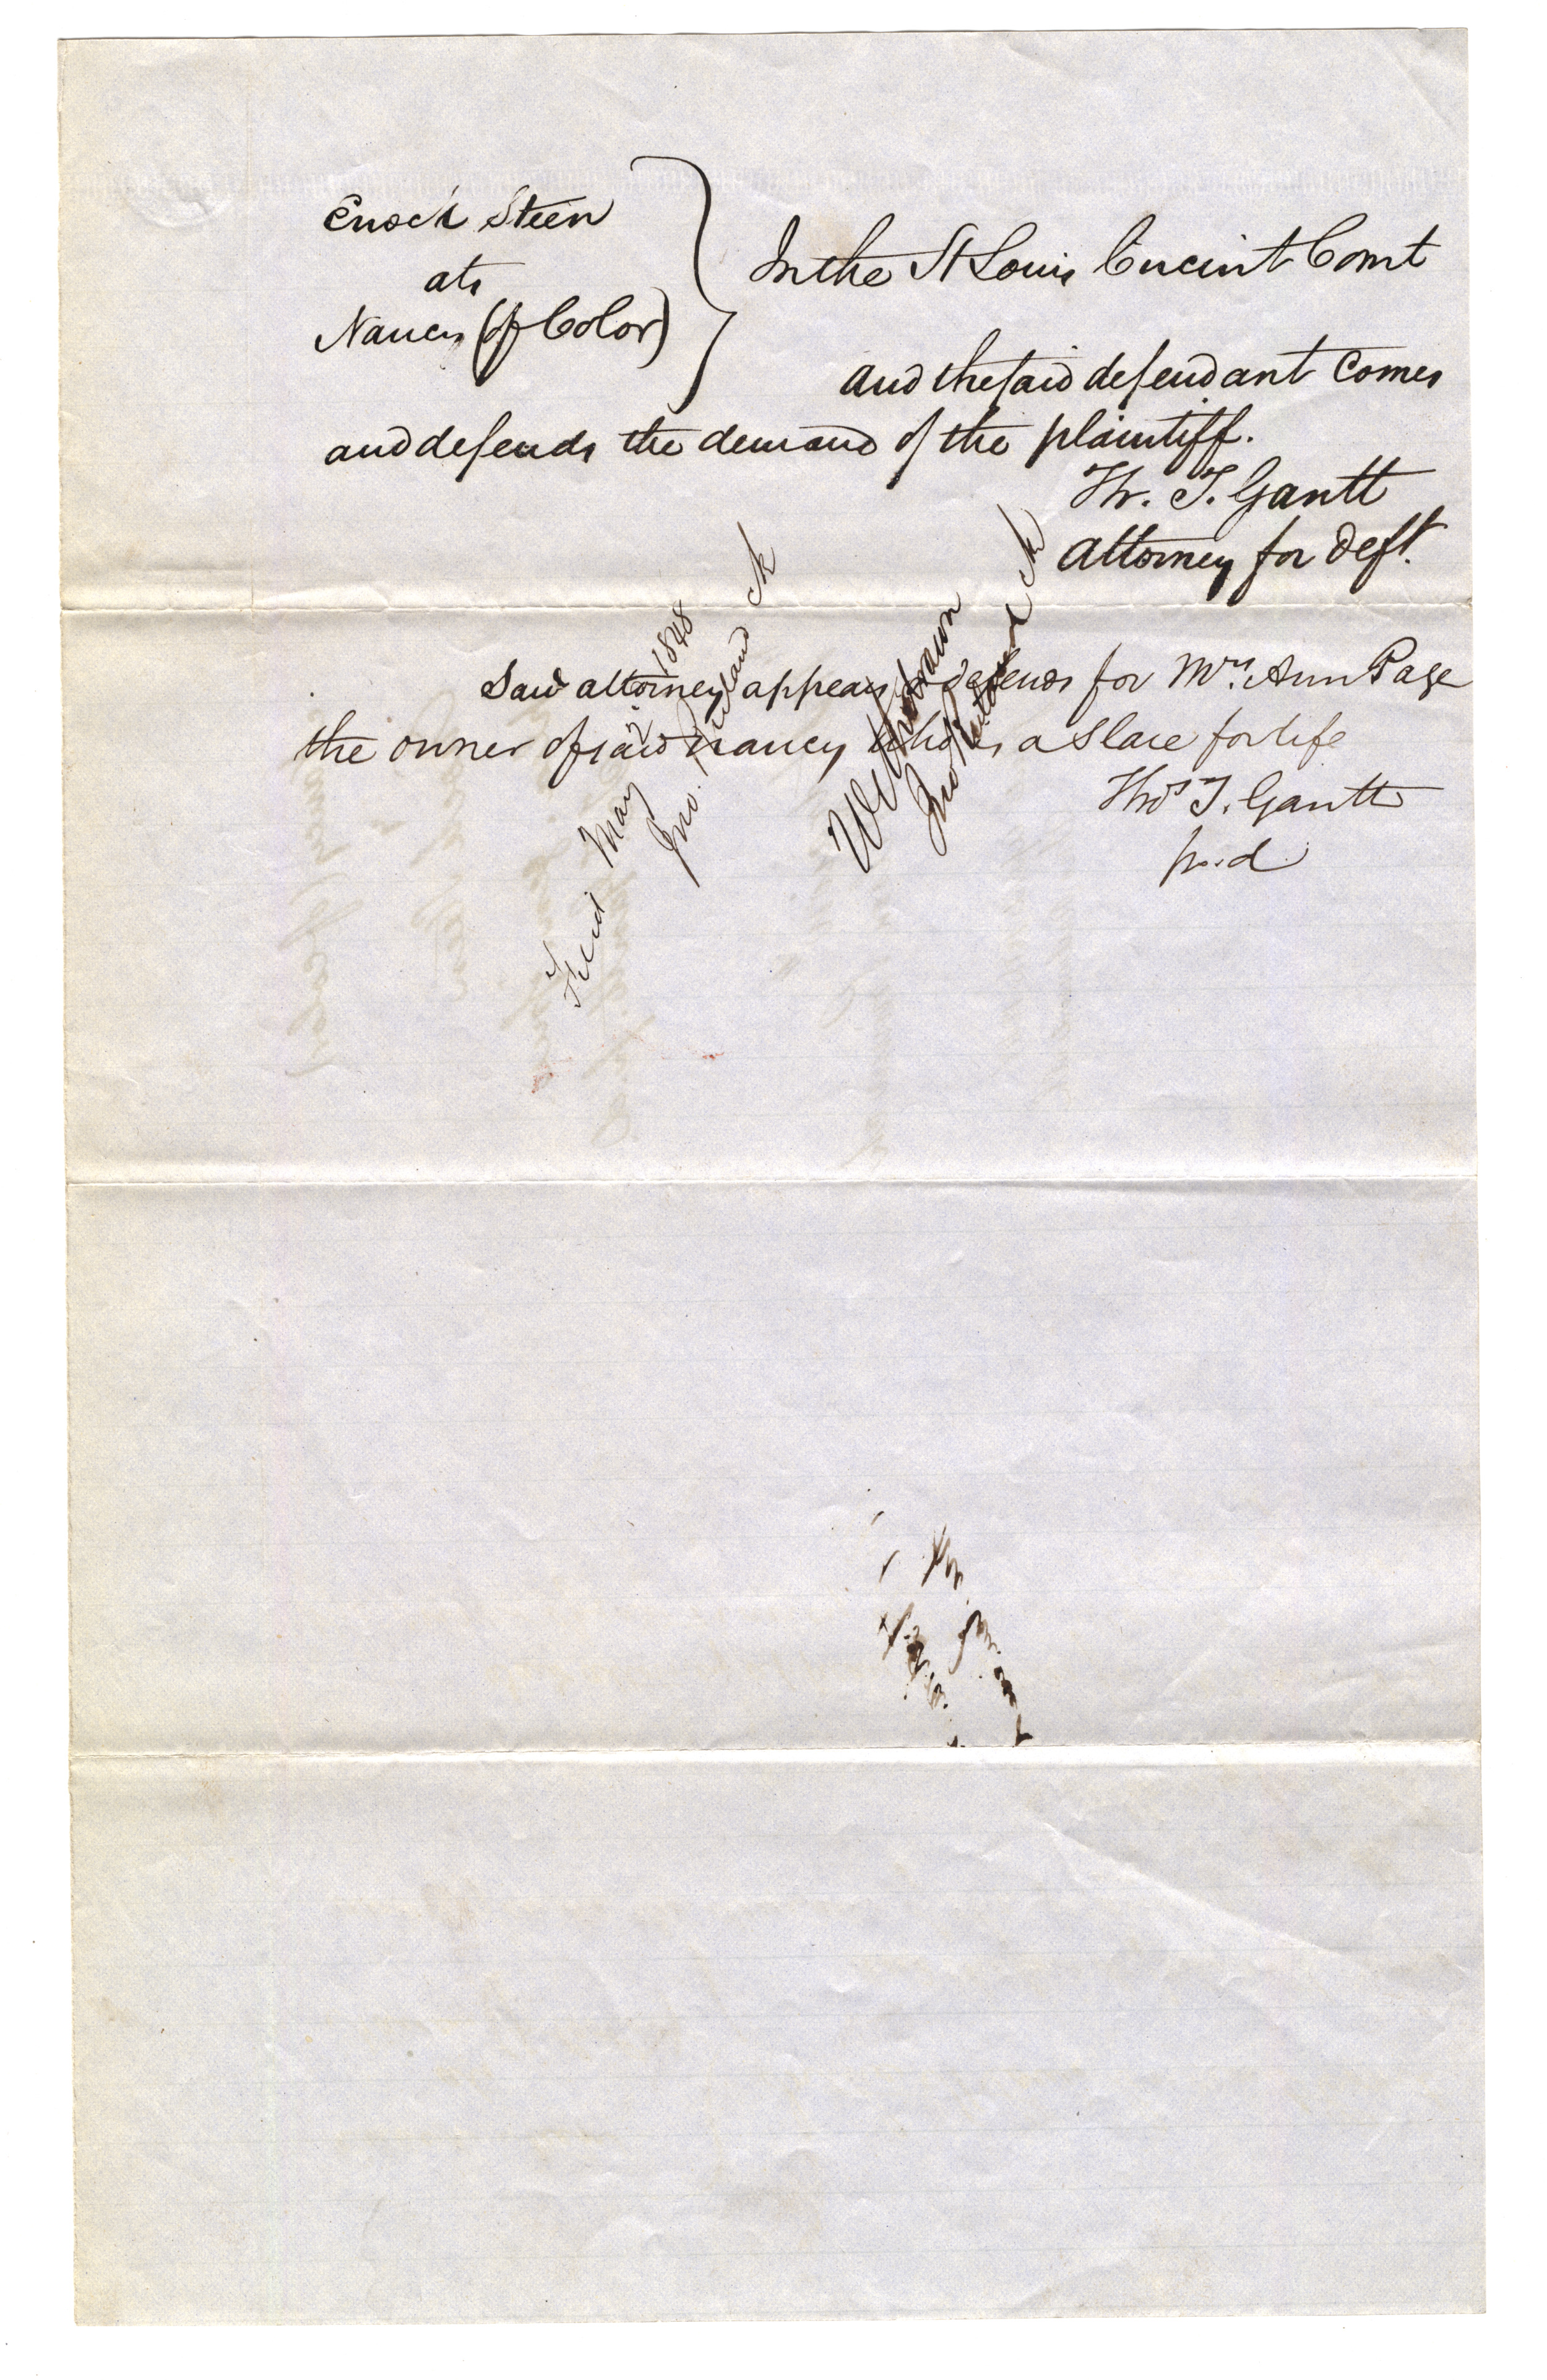 Enoch Steen
ats
Nancy (of Color)
In the St Louis Circuit Court
and the said defendant comes
and defends the demand of the plaintiff.
Th. T. Gantt
Attorney for Deft.
Said attorney appears & defends for Mrs. Ann Page
the owner of said Nancy who is a slave for life
Thos T. Gantt
p.d
Filed May 1848
Jno. Ruland Ck
Withdrawn
Jno Ruland Ck